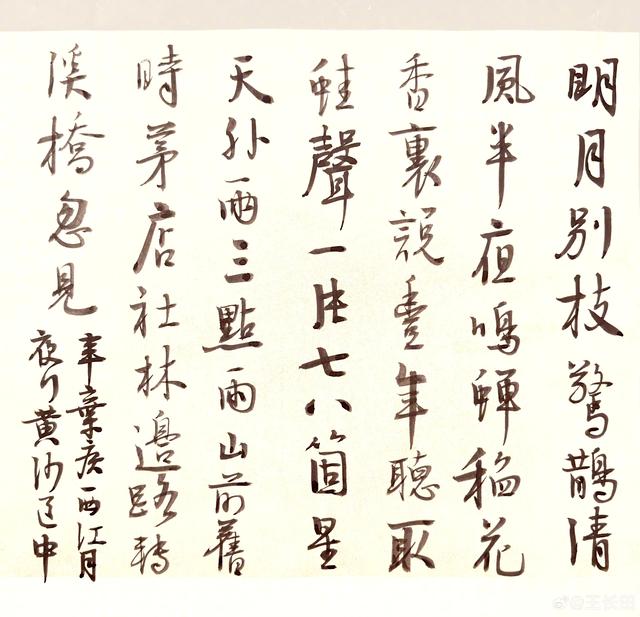 明月别枝驚鵲清
風半夜鳴蟬稻花
香裏説豐年聽取
蛙聲一片七八箇星
天外兩三點雨山前舊
時茅店社林邊路轉
溪橋忽見
辛棄疾西江月
夜行黄沙道中
@王长田